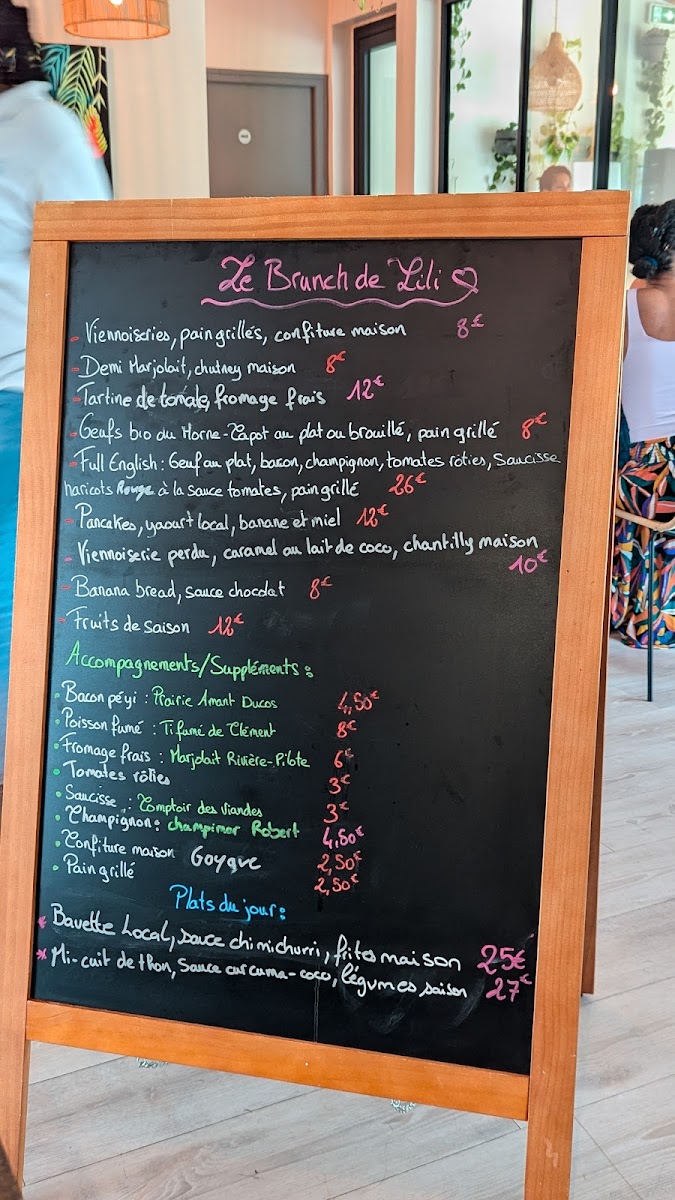 Le Brunch de Lili
- Viennoiseries, pain grillés, confiture maison 8€
- Demi Marjolait, chutney maison 8€
- Tartine de tomate, fromage frais 12€
- Oeufs bio du Morne-Capot au plat ou brouillé, pain grillé 8€
- Full English : Oeuf au plat, bacon, champignon, tomates rôties, Saucisse
haricots Rouge à la sauce tomates, pain grillé 26€
- Pancakes, yaourt local, banane et miel 12€
- Viennoiserie perdu, caramel au lait de coco, chantilly maison
10€
- Banana bread, sauce chocolat 8€
- Fruits de saison 12€
Accompagnements/Suppléments :
• Bacon péyi : Prairie Amant Ducos 4,50€
• Poisson fumé : Ti fumé de Clément 8€
• Fromage frais : Marjolait Rivière-Pilote 6€
• Tomates rôties 3€
• Saucisse : Comptoir des viandes 3€
• Champignon : champimer Robert 4,50€
• Confiture maison Goyave 2,50€
• Pain grillé 2,50€
Plats du jour :
* Bavette Local, sauce chimichurri, frites maison 25€
* Mi-cuit de thon, sauce curcuma-coco, légumes saison 27€